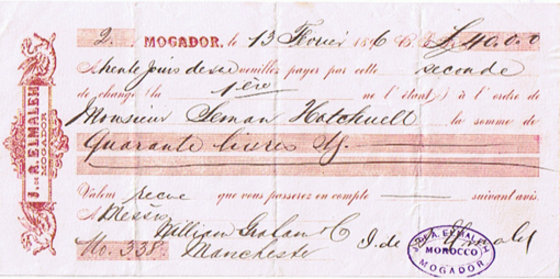 J. DE A. ELMALEH
MOGADOR
2. MOGADOR, le 13 Février 1896 B.P. £40.0.0
A trente jours de vue veuillez payer par cette seconde
de change (la 1ère ne l'étant) à l'ordre de
Monsieur Seman Hatchuell la somme de
Quarante livres Stg.
Valeur recue que vous passerez en compte suivant avis.
A Messrs
William Graham & Co
No. 338 Manchester
J. de A. Elmaleh
J. DE A. ELMALEH
MOROCCO
MOGADOR